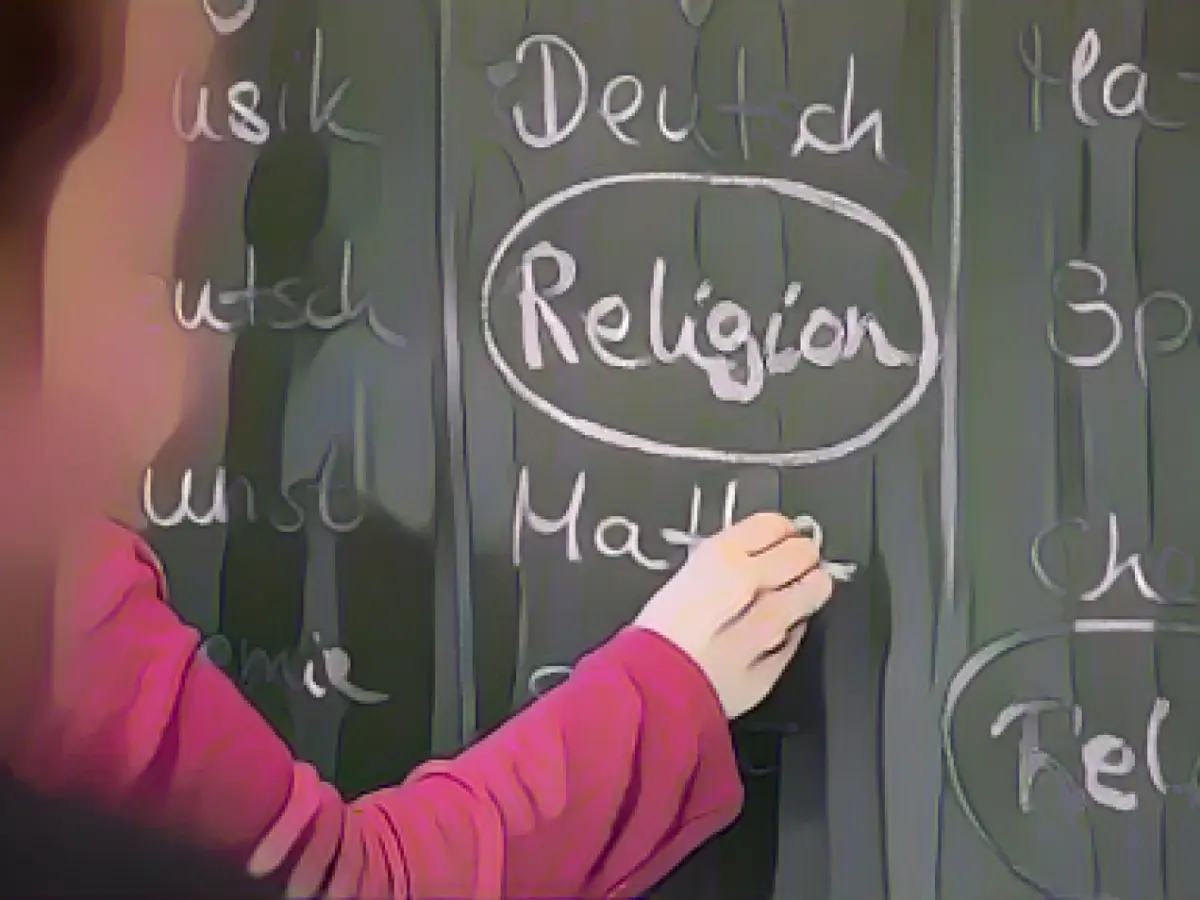 usik
utsch
unst
emie
Deutsch
Religion
Mathe
Ma
Sp
Ch
Rel